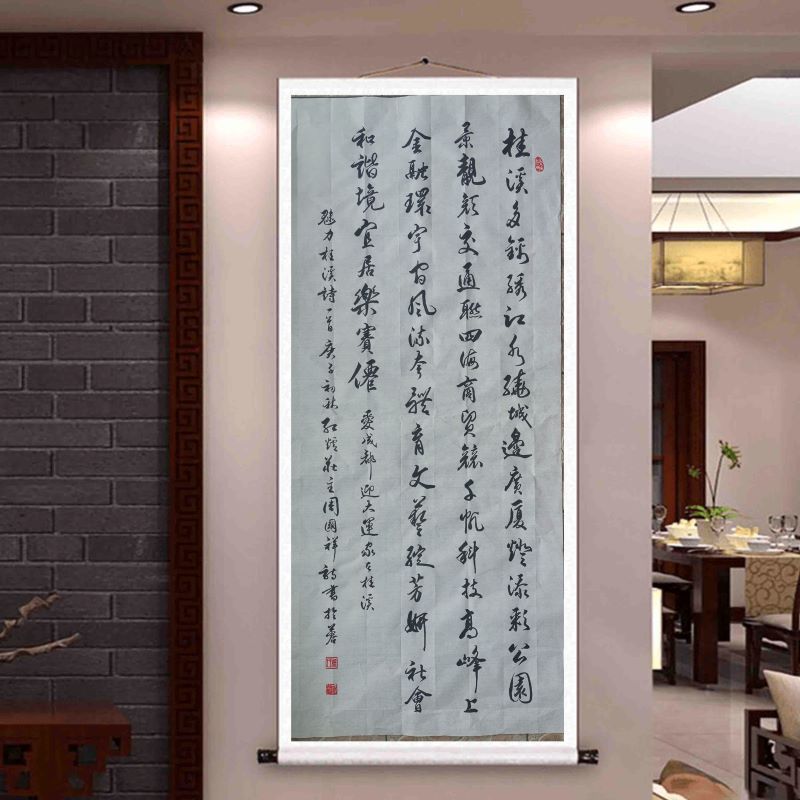 桂溪多錦綉江水繞城邊廣厦燈添彩公園
景靚顔交通聯四海商貿競千帆科技高峰上
金融環宇風流夸體育文藝綻芳妍社會
和諧境宜居樂賽僊
愛成都迎大運家桂溪
魅力桂溪詩一首庚子初秋紅莊主周國祥詩書於蓉